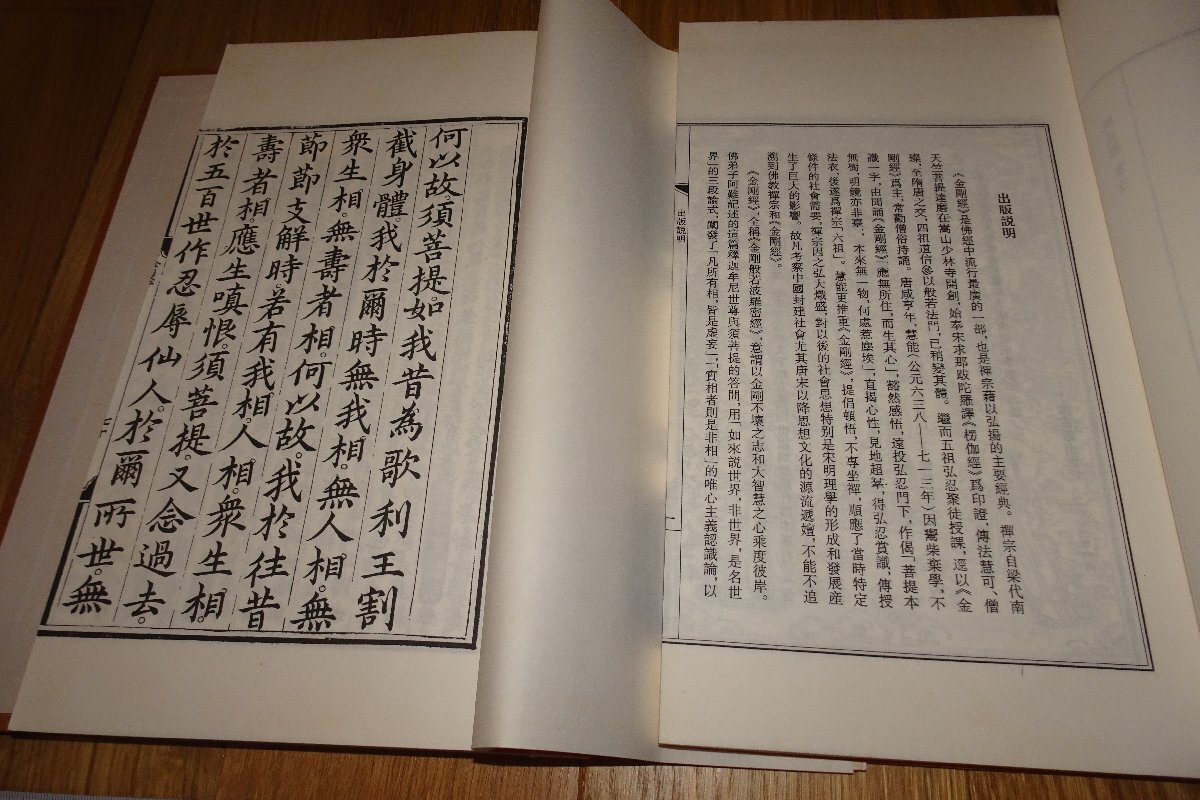 出版説明
《金剛經》是佛經中流行最廣的一部,也是禪宗藉以弘揚的主要經典。禪宗自梁代南
天竺菩提達磨在嵩山少林寺開創,始奉宋求那跋陀羅譯《楞伽經》爲印證,傳法慧可、僧
璨,至隋唐之交,四祖道信參以般若法門,已稍變其體。繼而五祖弘忍聚徒授課,逕以《金
剛經》爲主,常勸僧俗持誦。唐咸亨年,慧能(公元六三八——七一三年)因鬻柴棄學,不
識一字,由聞誦《金剛經》「應無所住,而生其心」,豁然感悟,遠投弘忍門下,作偈「菩提本
無樹,明鏡亦非臺,本來無一物,何處惹塵埃」,直揭心性,見地超桀,得弘忍賞識,傳授
法衣,後遂爲禪宗「六祖」。慧能更推重《金剛經》,提倡頓悟,不專坐禪,順應了當時特定
條件的社會需要,禪宗因之弘大熾盛,對以後的社會思想特別是宋明理學的形成和發展産
生了巨大的影響。故凡考察中國封建社會尤其唐宋以降思想文化的源流遞嬗,不能不追
溯到佛教禪宗和《金剛經》。
《金剛經》,全稱《金剛般若波羅密經》,意謂以金剛不壞之志和大智慧之心乘度彼岸。
佛弟子阿難記述的這篇釋迦牟尼世尊與須菩提的答問,用「如來說世界,非世界,是名世
界」的三段論式,闡發了「凡所有相,皆是虛妄」,「實相者則是非相」的唯心主義認識論,以
出版説明
一
何以故。須菩提。如我昔為歌利王割
截身體。我於爾時無我相。無人相。無
衆生相。無壽者相。何以故。我於往昔
節節支解時。若有我相。人相。衆生相。
壽者相。應生嗔恨。須菩提。又念過去。
於五百世作忍辱仙人。於爾所世。無